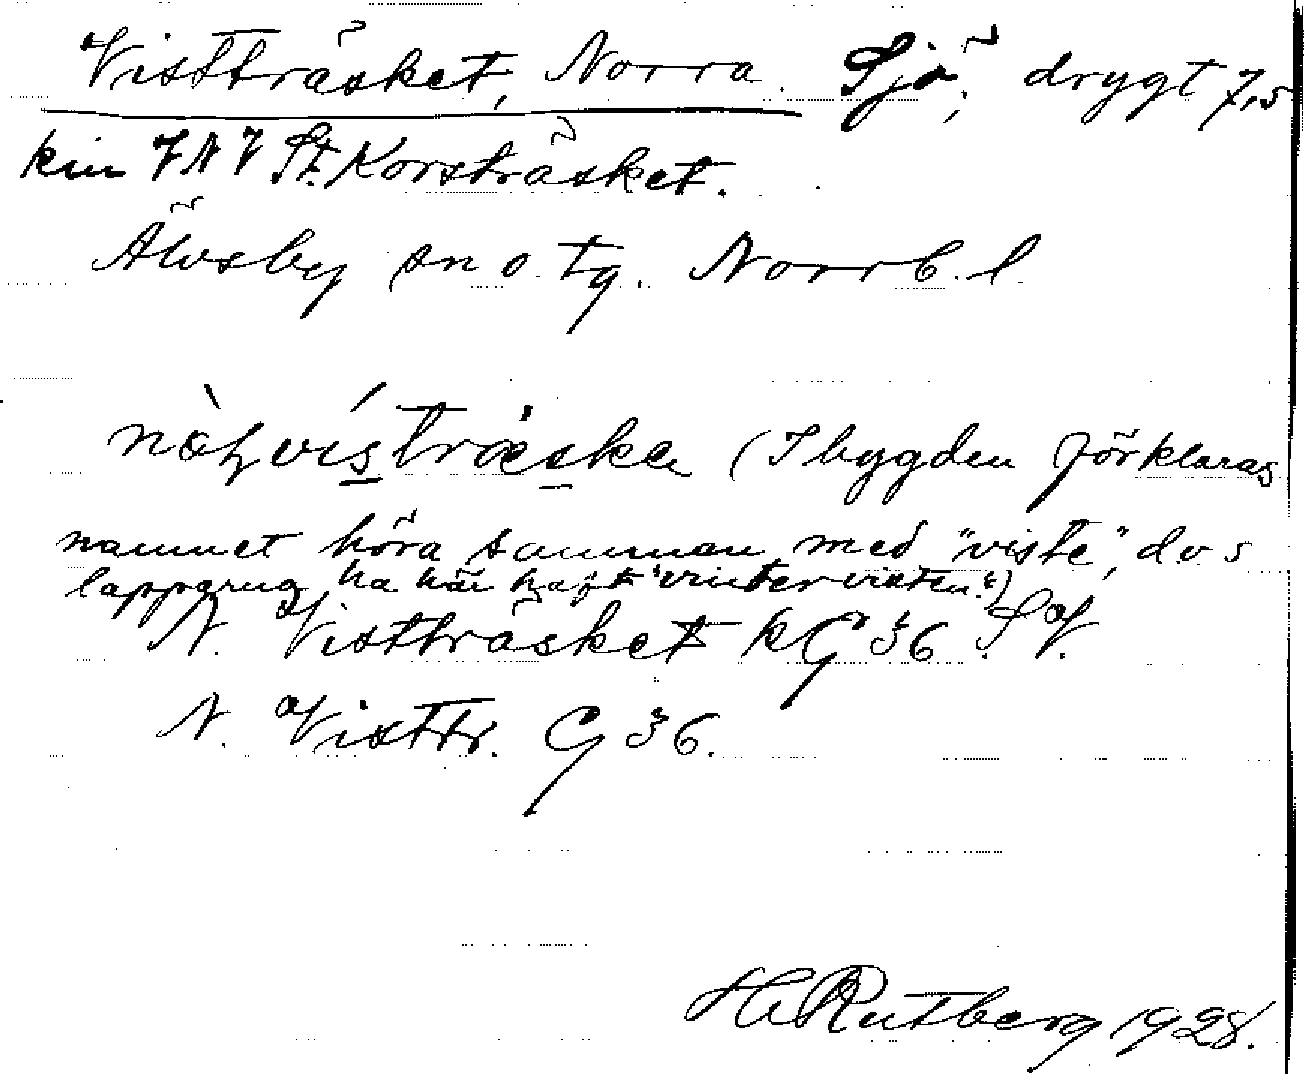 Vistträsket, Norra. Sjö, drygt 7,5
km VNV St. Korsträsket.
Älvsby sn o. tg. Norrb. l.
vistræske (I bygden förklaras
namnet höra samman med "viste", dvs
lappgrug ha här haft "vintervisten".)
N. Vistträsket kG 36 S.V.
N. Visttr. G 36.
H. Rutberg 1928.